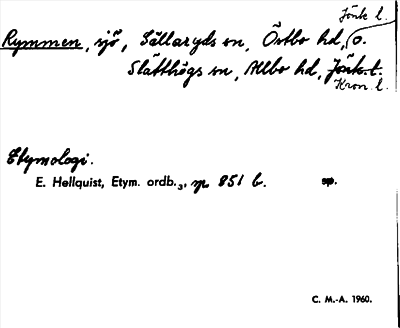 Jönk l.
Rymmen, sjö, Sällaryds sn, Östbo hd, o.
Slätthögs sn, Allbo hd, Jönk. l.
Kron. l.
Etymologi.
E. Hellquist, Etym. ordb.₃, p. 851 b. sp.
C. M.-A. 1960.